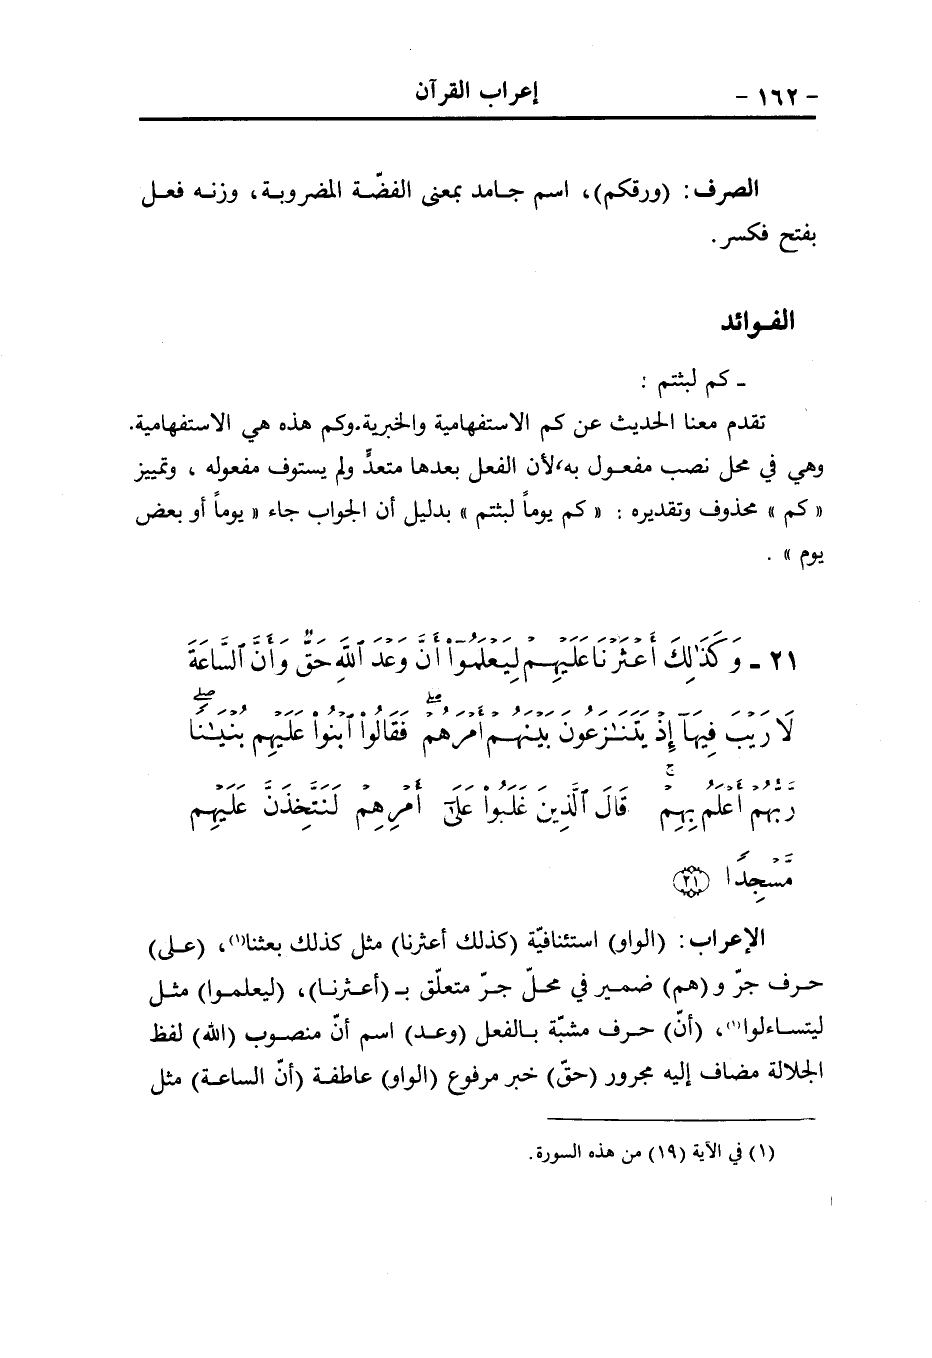 - ١٦٢ - إعراب القرآن
الصرف: (ورقكم)، اسم جامد بمعنى الفضّة المضروبة، وزنه فعل
بفتح فكسر.
الفوائد
ـ كم لبثتم :
تقدم معنا الحديث عن كم الاستفهامية والخبرية.وكم هذه هي الاستفهامية.
وهي في محل نصب مفعول به، لأن الفعل بعدها متعدٍّ ولم يستوف مفعوله ، وتمييز
« كم » محذوف وتقديره : « كم يوماً لبثتم » بدليل أن الجواب جاء « يوماً أو بعض
يوم » .
٢١ ـ وَكَذَٰلِكَ أَعْثَرْنَا عَلَيْهِمْ لِيَعْلَمُوٓا۟ أَنَّ وَعْدَ ٱللَّهِ حَقٌّ وَأَنَّ ٱلسَّاعَةَ
لَا رَيْبَ فِيهَآ إِذْ يَتَنَـٰزَعُونَ بَيْنَهُمْ أَمْرَهُمْ ۖ فَقَالُوا۟ ٱبْنُوا۟ عَلَيْهِم بُنْيَـٰنًا ۖ
رَّبُّهُمْ أَعْلَمُ بِهِمْ ۚ قَالَ ٱلَّذِينَ غَلَبُوا۟ عَلَىٰٓ أَمْرِهِمْ لَنَتَّخِذَنَّ عَلَيْهِم
مَّسْجِدًا (٢١)
الإعراب: (الواو) استئنافيّة (كذلك أعثرنا) مثل كذلك بعثنا(١)، (على)
حرف جرّ و(هم) ضمير في محلّ جرّ متعلّق بـ (أعثرنا)، (ليعلموا) مثل
ليتساءلوا(١)، (أنّ) حرف مشبّه بالفعل (وعد) اسم أنّ منصوب (الله) لفظ
الجلالة مضاف إليه مجرور (حقّ) خبر مرفوع (الواو) عاطفة (أنّ الساعة) مثل
(١) في الآية (١٩) من هذه السورة.